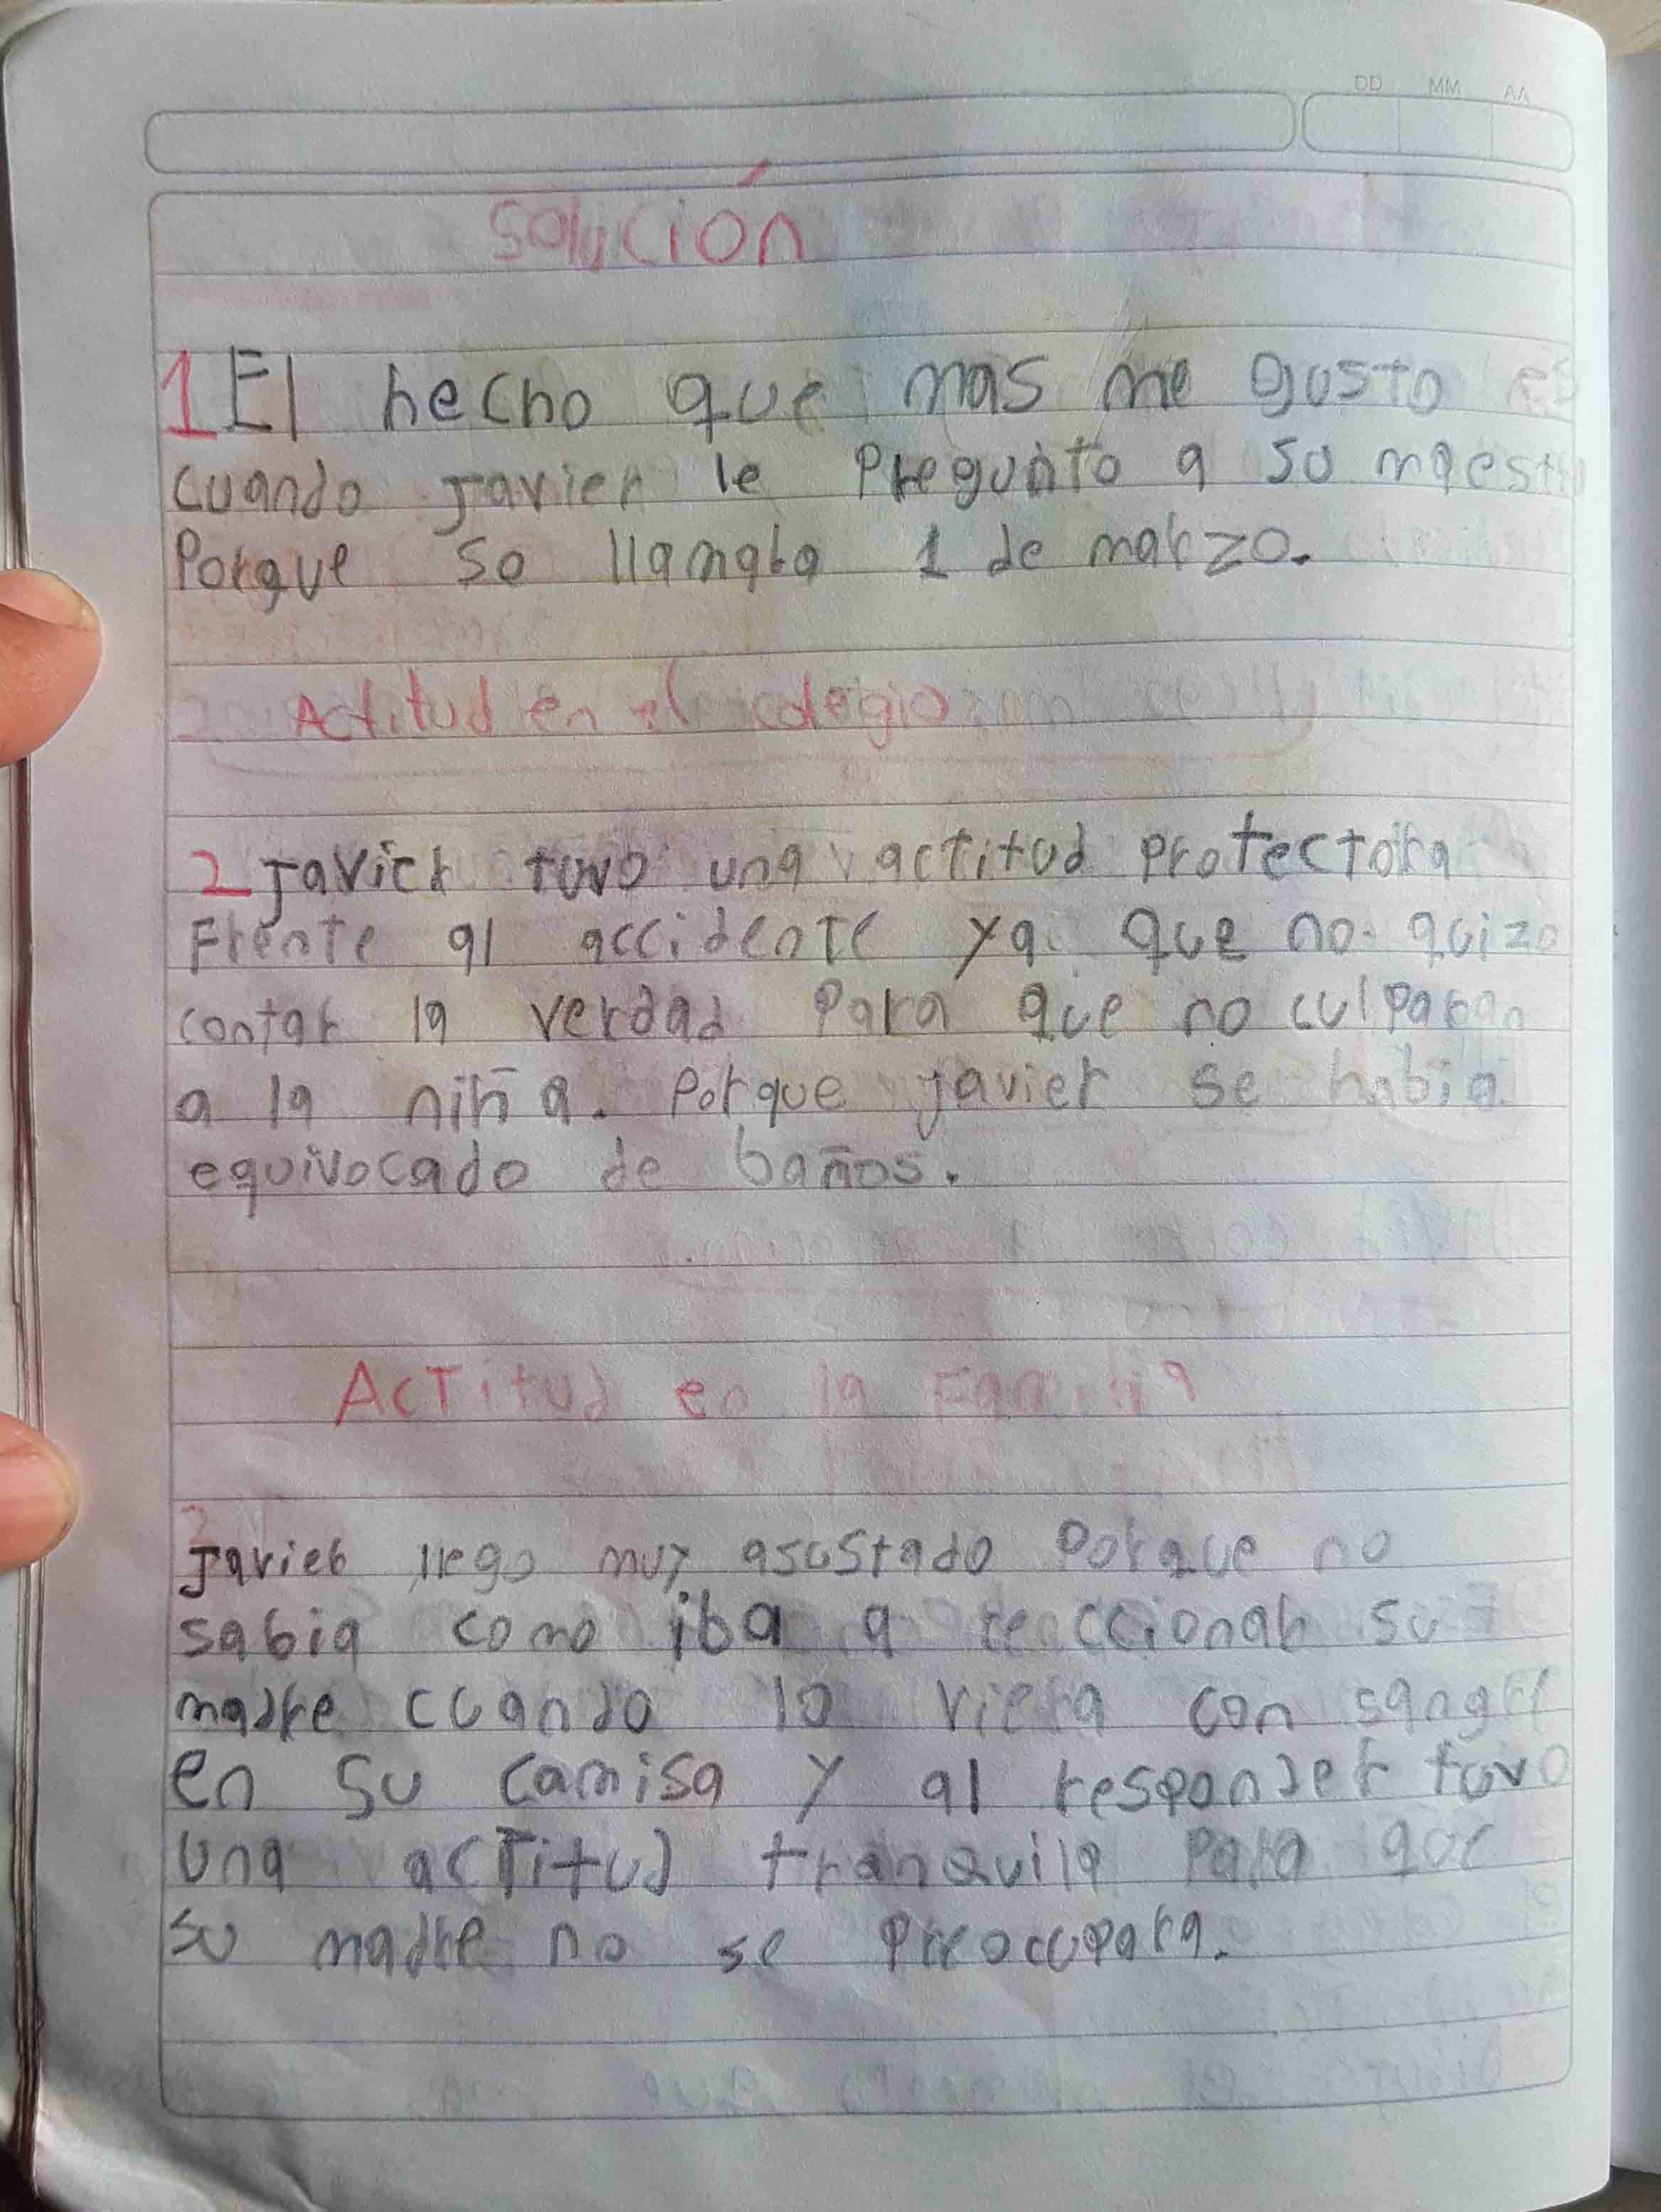 DD MM AA
Solución
1 El hecho que mas me gusto es
cuando Javier le Pregunto a su maestro
Porque se llamaba 1 de marzo.
Actitud en el colegio
2 Javier tuvo una actitud protectora
Frente al accidente ya que no quizo
contar la verdad Para que no culparan
a la niña. Porque Javier se habia
equivocado de baños.
Actitud en la Familia
Javier llego muy asustado Porque no
sabia como iba a reaccionar su
madre cuando lo viera con sangre
en su camisa y al responder tuvo
una actitud tranquila Para que
su madre no se Preocupara.